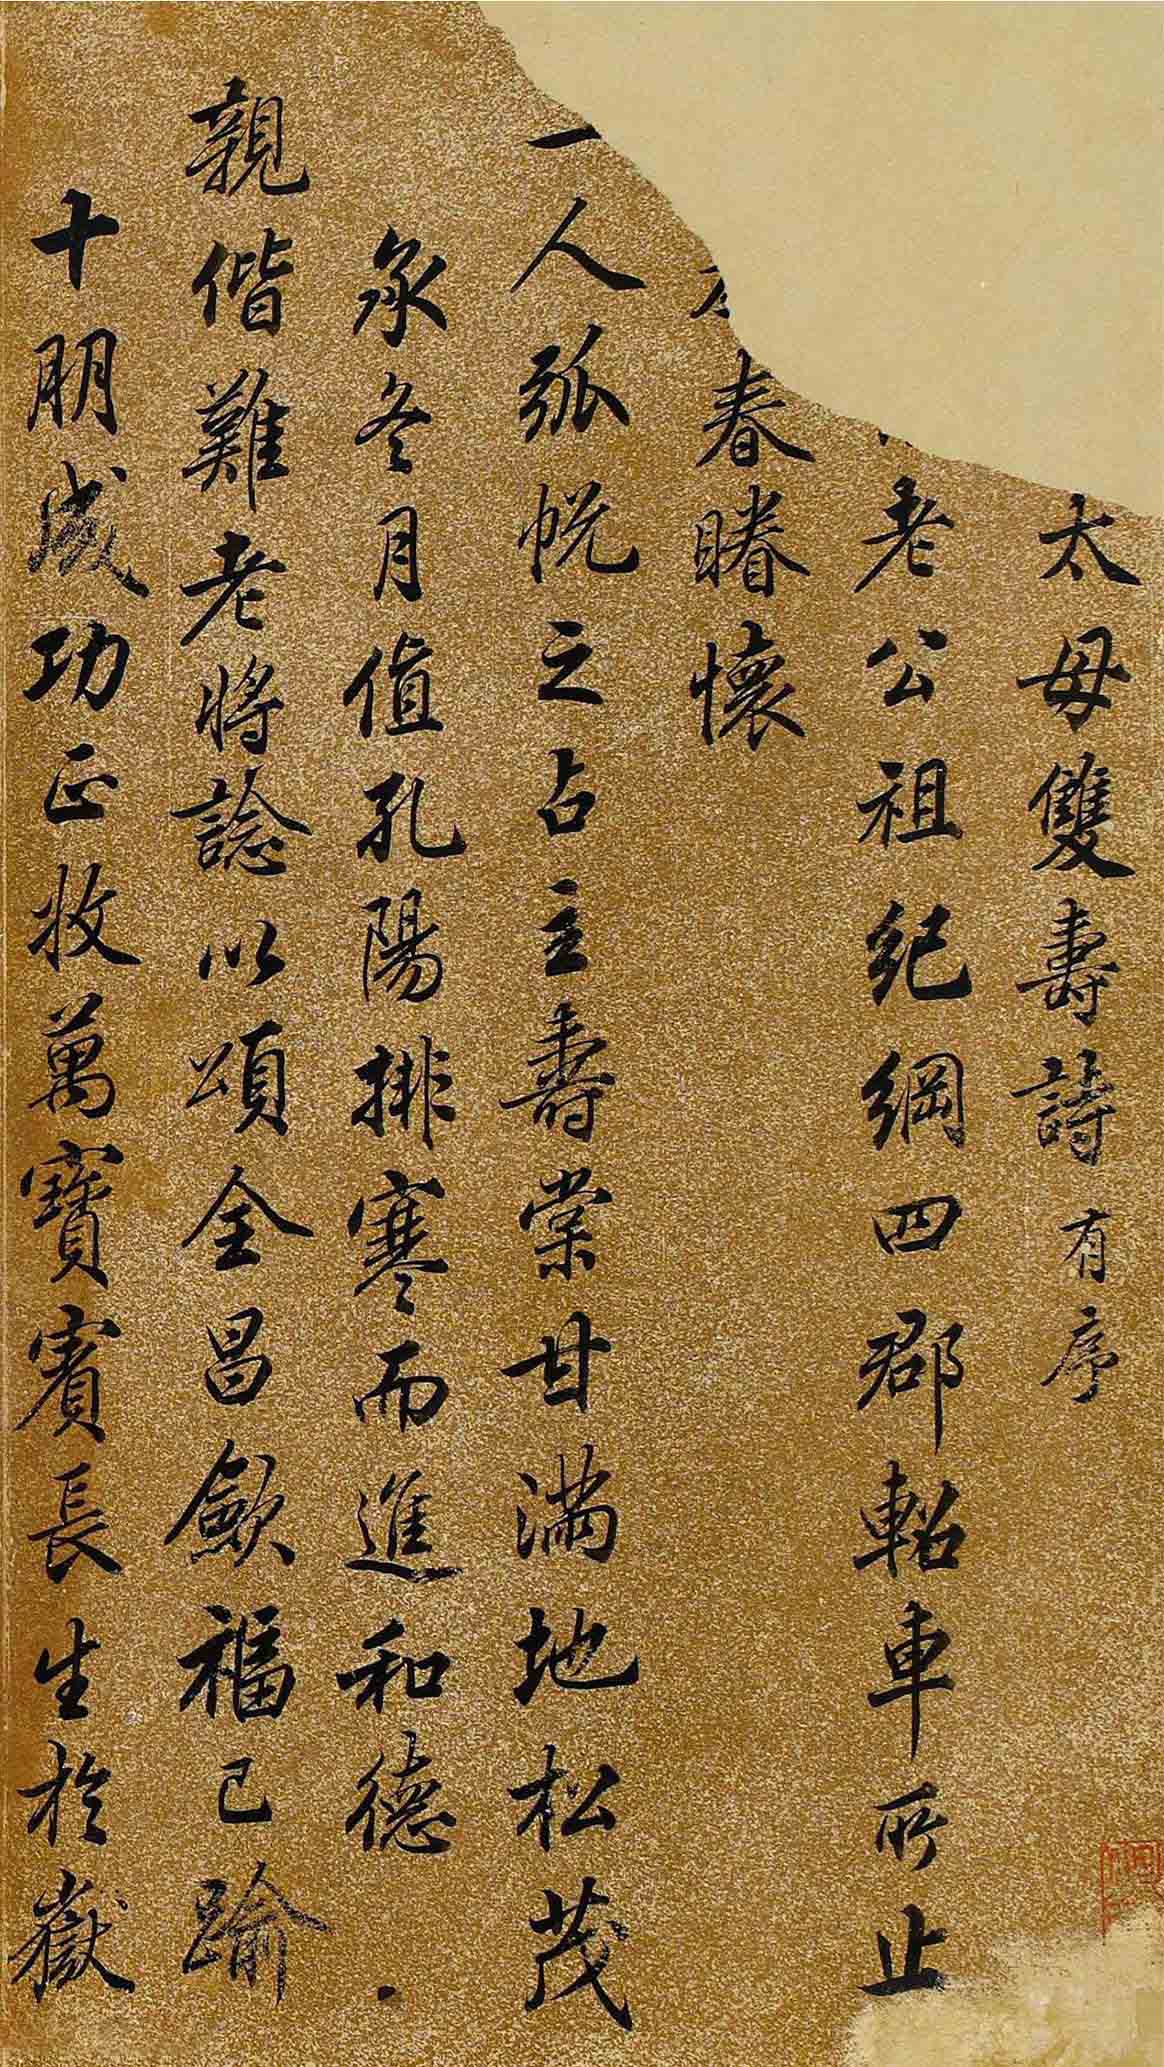 太母雙壽詩有序
老公祖紀綱四郡軺車所止
春睠懷
一人弧帨之占主壽棠甘滿地松茂
承冬月值孔陽排寒而進和德
親偕難老將諗以頌全昌斂福已踰
十朋成功正收萬寶賓長生於嶽